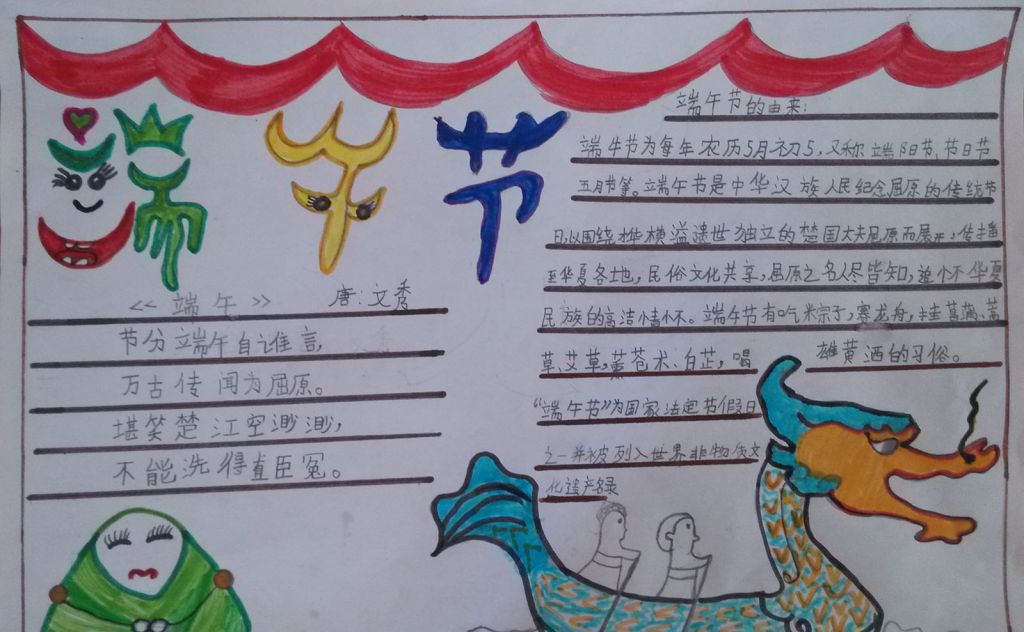 端午节
《端午》 唐:文秀
节分端午自谁言,
万古传闻为屈原。
堪笑楚江空渺渺,
不能洗得直臣冤。
端午节的由来:
端午节为每年农历5月初5,又称端阳节、节日节
五月节等。端午节是中华汉族人民纪念屈原的传统节
日,以围绕才华横溢遗世独立的楚国大夫屈原而展开,传播
至华夏各地,民俗文化共享,屈原之名人尽皆知,追怀华夏
民族的高洁情怀。端午节有吃粽子,赛龙舟,挂菖蒲、蒿
草、艾草,薰苍术、白芷,喝
雄黄酒的习俗。
“端午节”为国家法定节假日
之一并被列入世界非物质文
化遗产名录